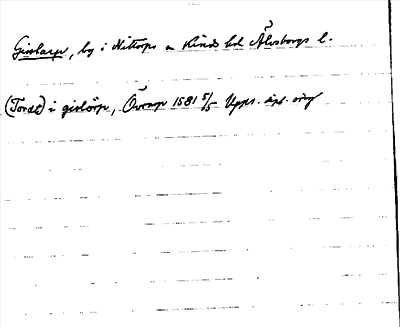 Gislarp, by i Nittorps sn Kinds hd Älvsborgs l.
(Tordt) i gislörp, Överup 1581 5/5 Upps. dipl. orig